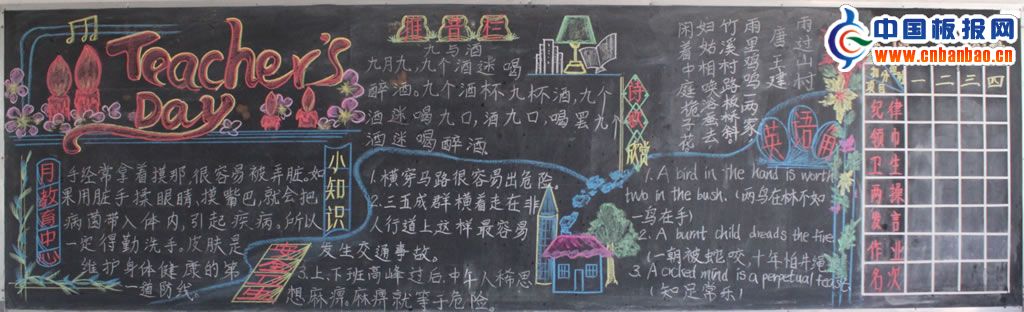 Teacher's
Day
拼音栏
九与酒
九月九,九个酒迷喝
醉酒。九个酒杯九杯酒,九个
酒迷喝九口,酒九口,喝罢九个
酒迷喝醉酒
诗歌欣赏
雨过山村
唐 王建
雨里鸡鸣一两家
竹溪村路板桥斜
妇姑相唤浴蚕去
闲着中庭栀子花
中国板报网
www.cnbanbao.cn
一 二 三 四
纪律
领巾
卫生
两操
发言
作业
名次
月教育中心
手经常拿着摸那,很容易被弄脏。如
果用脏手揉眼睛,摸嘴巴,就会把
病菌带入体内,引起疾病。所以
一定得勤洗手。皮肤是
维护身体健康的第
一道防线。
小知识
1.横穿马路很容易出危险。
2.三五成群横着走在非
人行道上这样最容易
发生交通事故。
3.上、下班高峰过后,中午人稀思
想麻痹。麻痹就等于危险。
英语角
1. A bird in the hand is worth
two in the bush. (两鸟在林不如
一鸟在手)
2. A burnt child dreads the fire
(一朝被蛇咬,十年怕井绳)
3. A cocked mind is a perpetual feast.
(知足常乐)